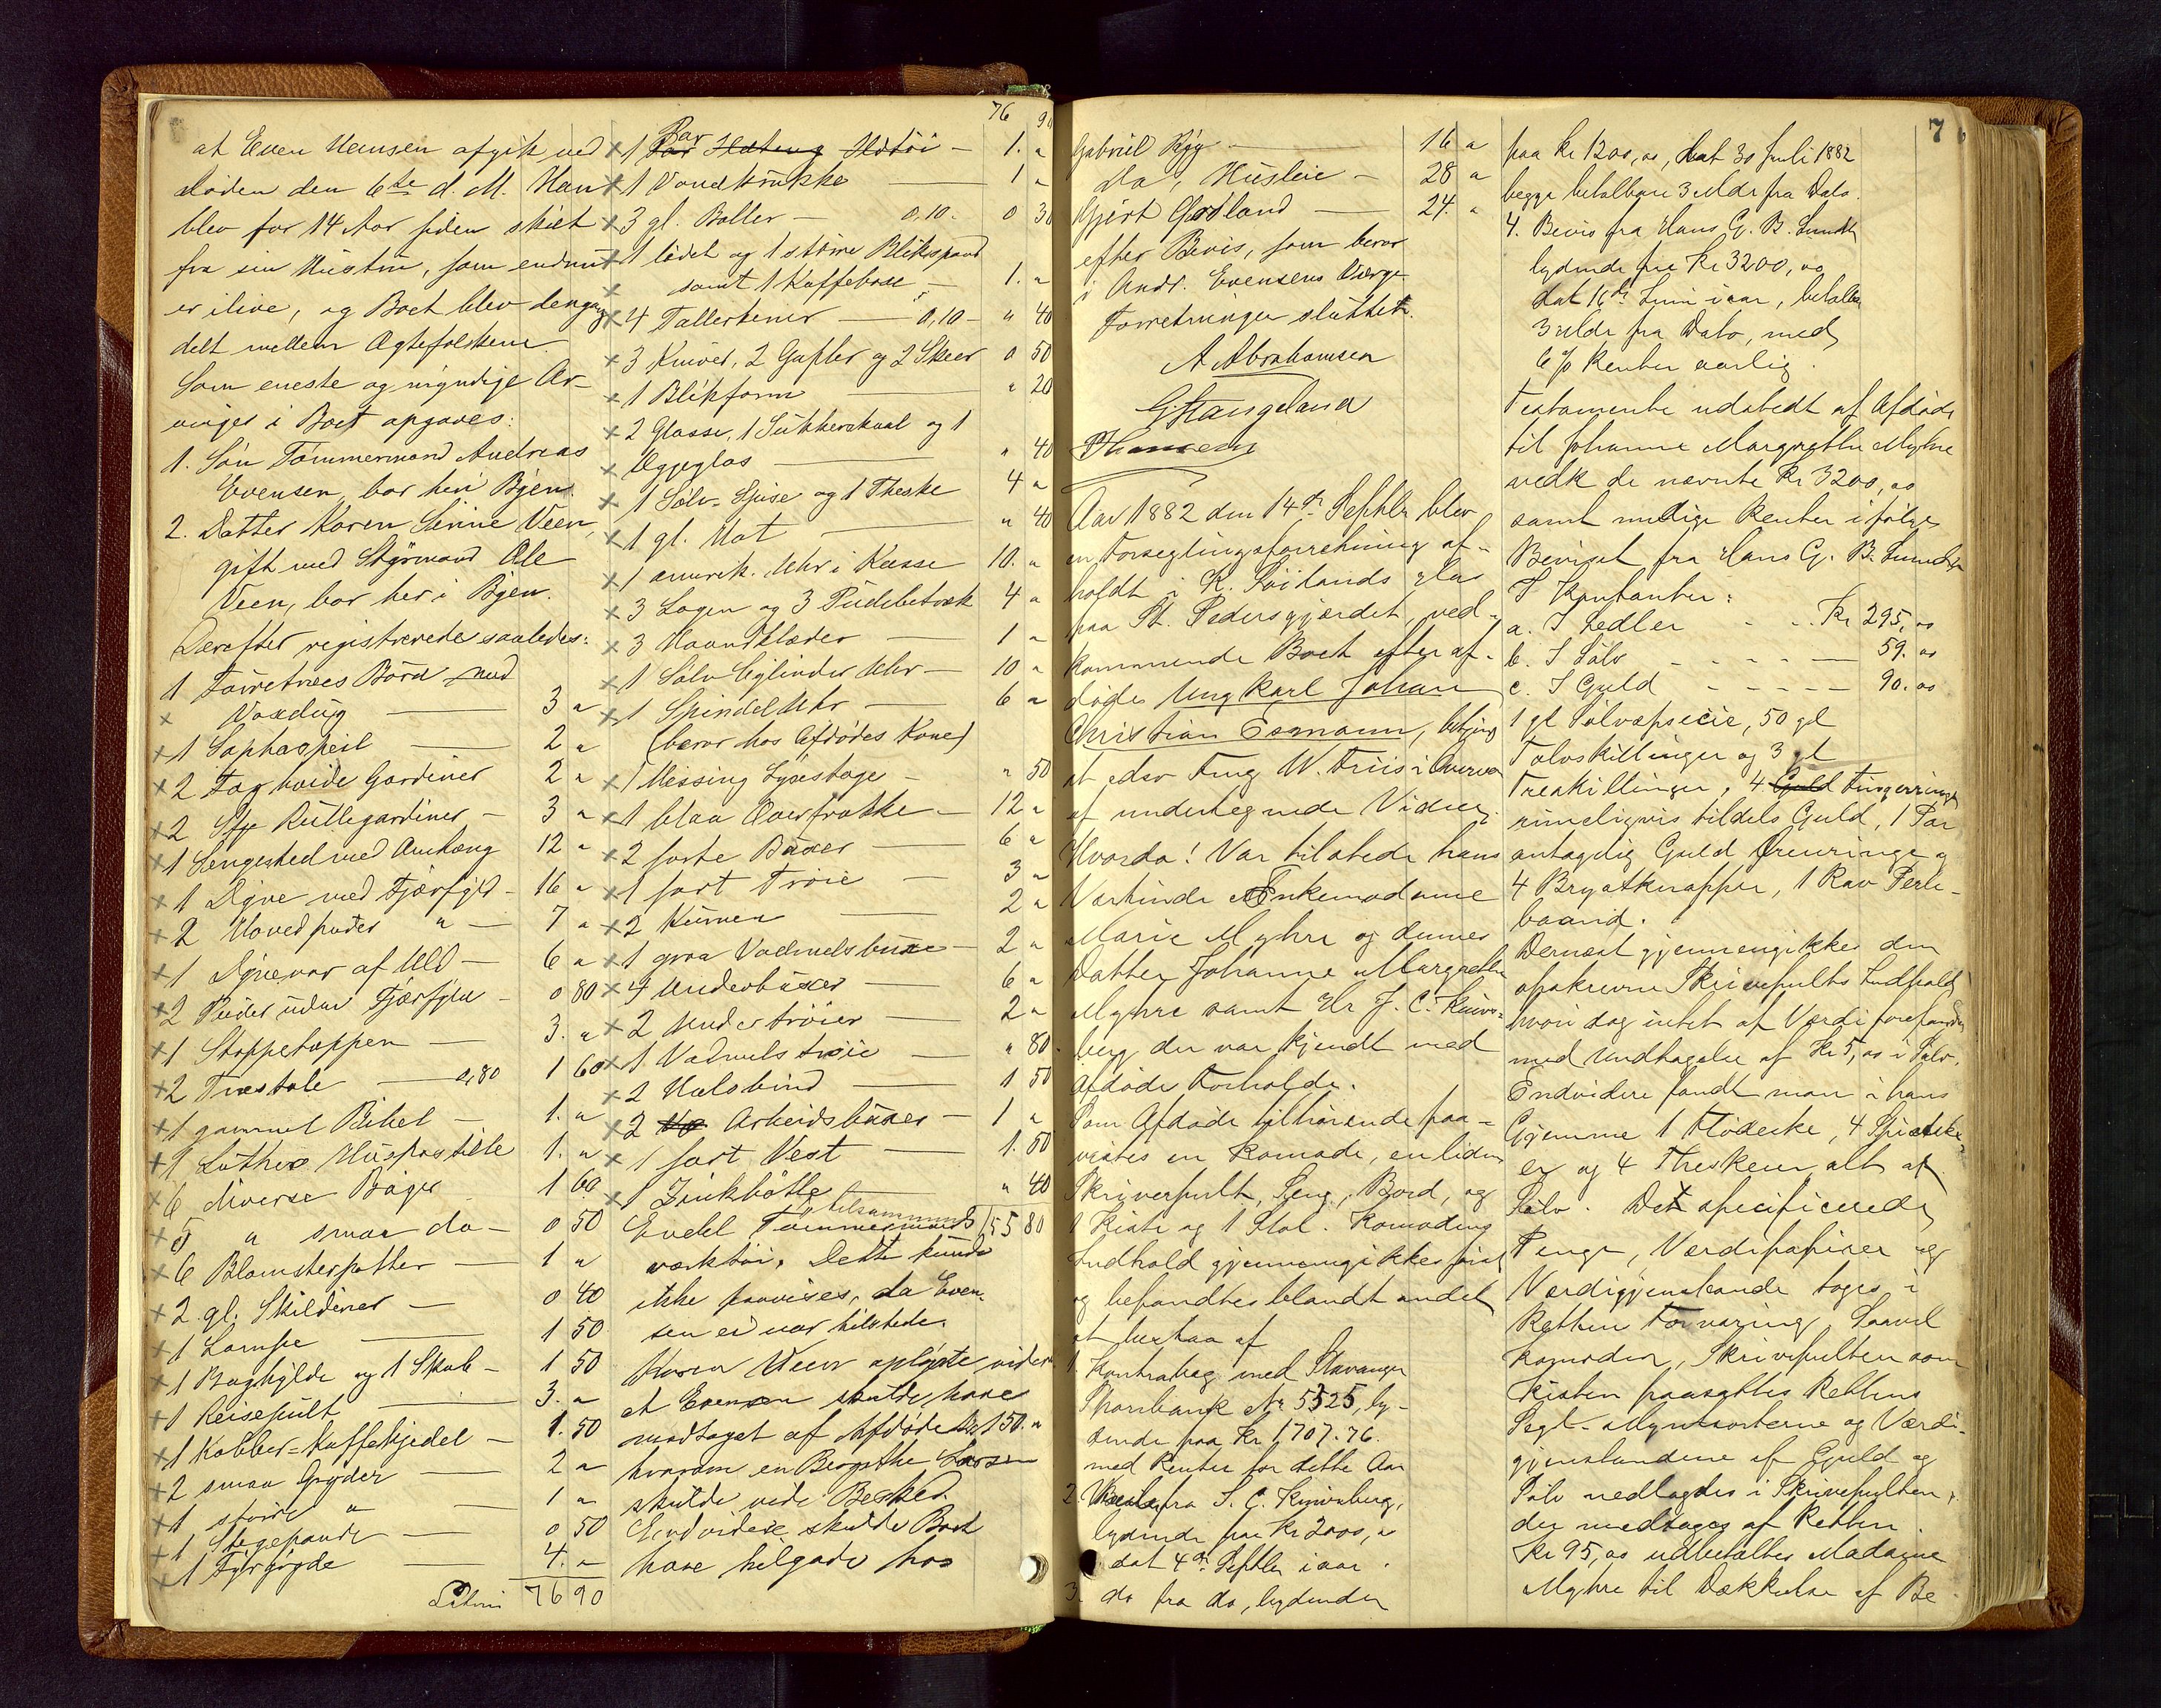 at Even Hansen afgik ved
Døden den 6te d. M. Han
blev for 14 Aar siden skilt
fra sin Hustru, som endnu
er ilive, og Boet blev dengang
delt mellem Ægtefolkene.
Som eneste og myndige Ar-
vinger i Boet opgaves:
1. Søn Tømmermand Andreas
Evensen, bor her i Byen.
2. Datter Karen Serine Veen,
gift med Styrmand Ole
Veen, bor her i Byen.
Derefter registreredes saaledes:
1 Fyrretræes Bord med
x Voxdug 3 "
x 1 Sophaspeil 2 "
x 2 Fag hvide Gardiner 2 "
x 2 Stk Rullegardiner - 3 "
x 1 Sengested med Omhæng 12 "
x 1 Dyne med Fjærfyld - 16 "
x 2 Hovedputer " - 7 "
x 1 Dynevar af Uld - 6 "
x 2 Puder uden Fjærfyld - 0 80
x 1 Stoppetæppen - 3. "
x 2 Træstole - 0,80 1 60
x 1 gammel Bibel - 1. "
x 1 Luthers Huspostille 1. "
x 6 diverse Bøger 1 60
x 5 " smaa do - 0 50
x 6 Blomsterpotter - 1 "
x 2 gl. Skilderier - 0 40
x 1 Lampe 1 50
x 1 Boghylde og 1 Skab - 1 50
x 1 Reisepult 3. "
x 1 Kobber-Kaffekjedel - 1. 50
x 2 smaa Gryder 2 "
x 1 større " 1 "
x 1 Stegepande 0 50
x 1 Fyrgryde 4. "
Latus 76 90
76 90
x 1 Par Hatøi - 1. "
x 1 Vandkrukke 1 "
x 3 gl. Boller - 0.10. 0 30
x 1 lidet og 1 større Blikspand
x samt 1 Kaffebøsse - 1. "
x 4 Tallerkener - 0,10 - " 40
x 3 Kniver, 2 Gafler og 2 Skeer 0 50
x 1 Blikform " 20
x 2 Glasse, 1 Sukkerskaal og 1
x Æggeglas " 40
x 1 Sølv-Spise og 1 Theske 4 "
x 1 gl. Hat " 40
x 1 amerik. Uhr i Kasse 10. "
x 3 Lagen og 3 Pudebetræk 4 "
x 3 Haandklæder 1 "
x 1 Sølv Cylinder Uhr - 10 "
x 1 Spindel Uhr 6 "
(beror hos Afdødes Kone)
x 1 Messing Lysestage - " 50
x 1 blaa Overfrakke - 12 "
x 2 sorte Buxer 6 "
x 1 sort Trøie - 3 "
x 2 2 "
x 1 graa Vadmelsbuxe - 2 "
x 4 Underbuxer 6 "
x 2 Undertrøier - 2 "
x 1 Vadmelstrøie - " 80
x 2 Halsbind 1 50
x 2 Arbeidsbuxer - 1 "
x 1 sort Vest 1. 50
x 1 Zinkbøtte " 40
tilsammen
Endel Tømmermands 155 80
værktøi. Dette kunde
ikke paavises, da Even-
sen ei var tilstede.
Karen Veen oplyste videre
at Evensen skulde have
modtaget af Afdøde Kr 150. "
hvorom en Bergithe Larsen
skulde vide Besked.
Endvidere skulde Boet
have tilgode hos
Gabriel Høg 16 "
Do, Husleie - 28 "
Gjert Gødland 24. "
efter Bevis, som beror
i Andr. Evensens Værge.
Forretningen sluttet.
A. Abrahamsen
G Stangeland
Aar 1882 den 14de Septbr blev
en Forseglingsforretning af-
holdt i K. Søilands Hus
paa St. Pedersgjærdet, ved-
kommende Boet efter af-
døde Ungkarl Johan
Christian Esmann, betjent
at edsv Fmg W. Friis i Overvær
af undertegnede Vidner.
Hvorda! Var tilstede hans
Værtinde Enkemadame
Marie Myhre og dennes
Datter Johanne Margrethe
Myhre samt Hr J. C. Knivs-
berg der var kjendt med
Afdødes Forholde.
Som Afdøde tilhørende paa-
vistes en Komode, en liden
Skriverpult, Seng, Bord, og
1 Kiste og 1 Stol. Komodens
Indhold gjennemgikkes først
og befandtes blandt andet
at bestaa af
1. Kontrabog med Stavanger
Sparebank No 5525, ly-
dende paa Kr 1707.76.
med Renter for dette Aar
2. fra S. C. Knivsberg,
lydende paa Kr 2000, "
dat 4de Septbr iaar.
3. do fra do, lydende
7
paa Kr 1200,00, dat 30 Juli 1882
begge betalbare 3 Mdr fra Dato.
4. Bevis fra Hans G. B. Sundt
lydende paa Kr 3200, 00
dat 16de Juni iaar, betalbar
3 Mdr fra Dato, med
6 % Renter aarlig.
Testamente udstedt af Afdøde
til Johanne Margrethe Myhre
vedk de nævnte Kr 3200,00
samt mulige Renter ifølge
Beviset fra Hans G. B. Sundt
I Kontanter:
a. I Sedler - - Kr 295,00
b. I Sølv - - - 59.00
c. I Guld - - - 90.00
1 gl Sølvspecie, 50 gl
Tolvskillinger og 3 gl
Treskillinger, 4 Guld Fingerringe
rimeligvis tildels Guld, 1 Par
antagelig Guld Ørenringe og
4 Brystknapper, 1 Rav Perle-
baand.
Dernæst gjennemgikkes den
opskrevne Skrivepults Indhold
hvori dog intet af Værdi forefandtes
med Undtagelse af Kr 5,00 i Sølv.
Endvidere fandt man i hans
Gjemme 1 Flødeske, 4 Spiseske-
er og 4 Theskeer, alt af
Sølv. Det specificerede
Penge, Værdipapirer og
Værdigjenstande toges i
Rettens Forvaring. Saavel
Komoden, Skrivepulten som
Kisten paasattes Rettens
Segl. Myntsorterne og Værdi-
gjenstandene af Guld og
Sølv nedlagdes i Skrivepulten,
der medtages af Retten.
Kr 95,00 udbetaltes Madame
Myhre til Dækkelse af Be